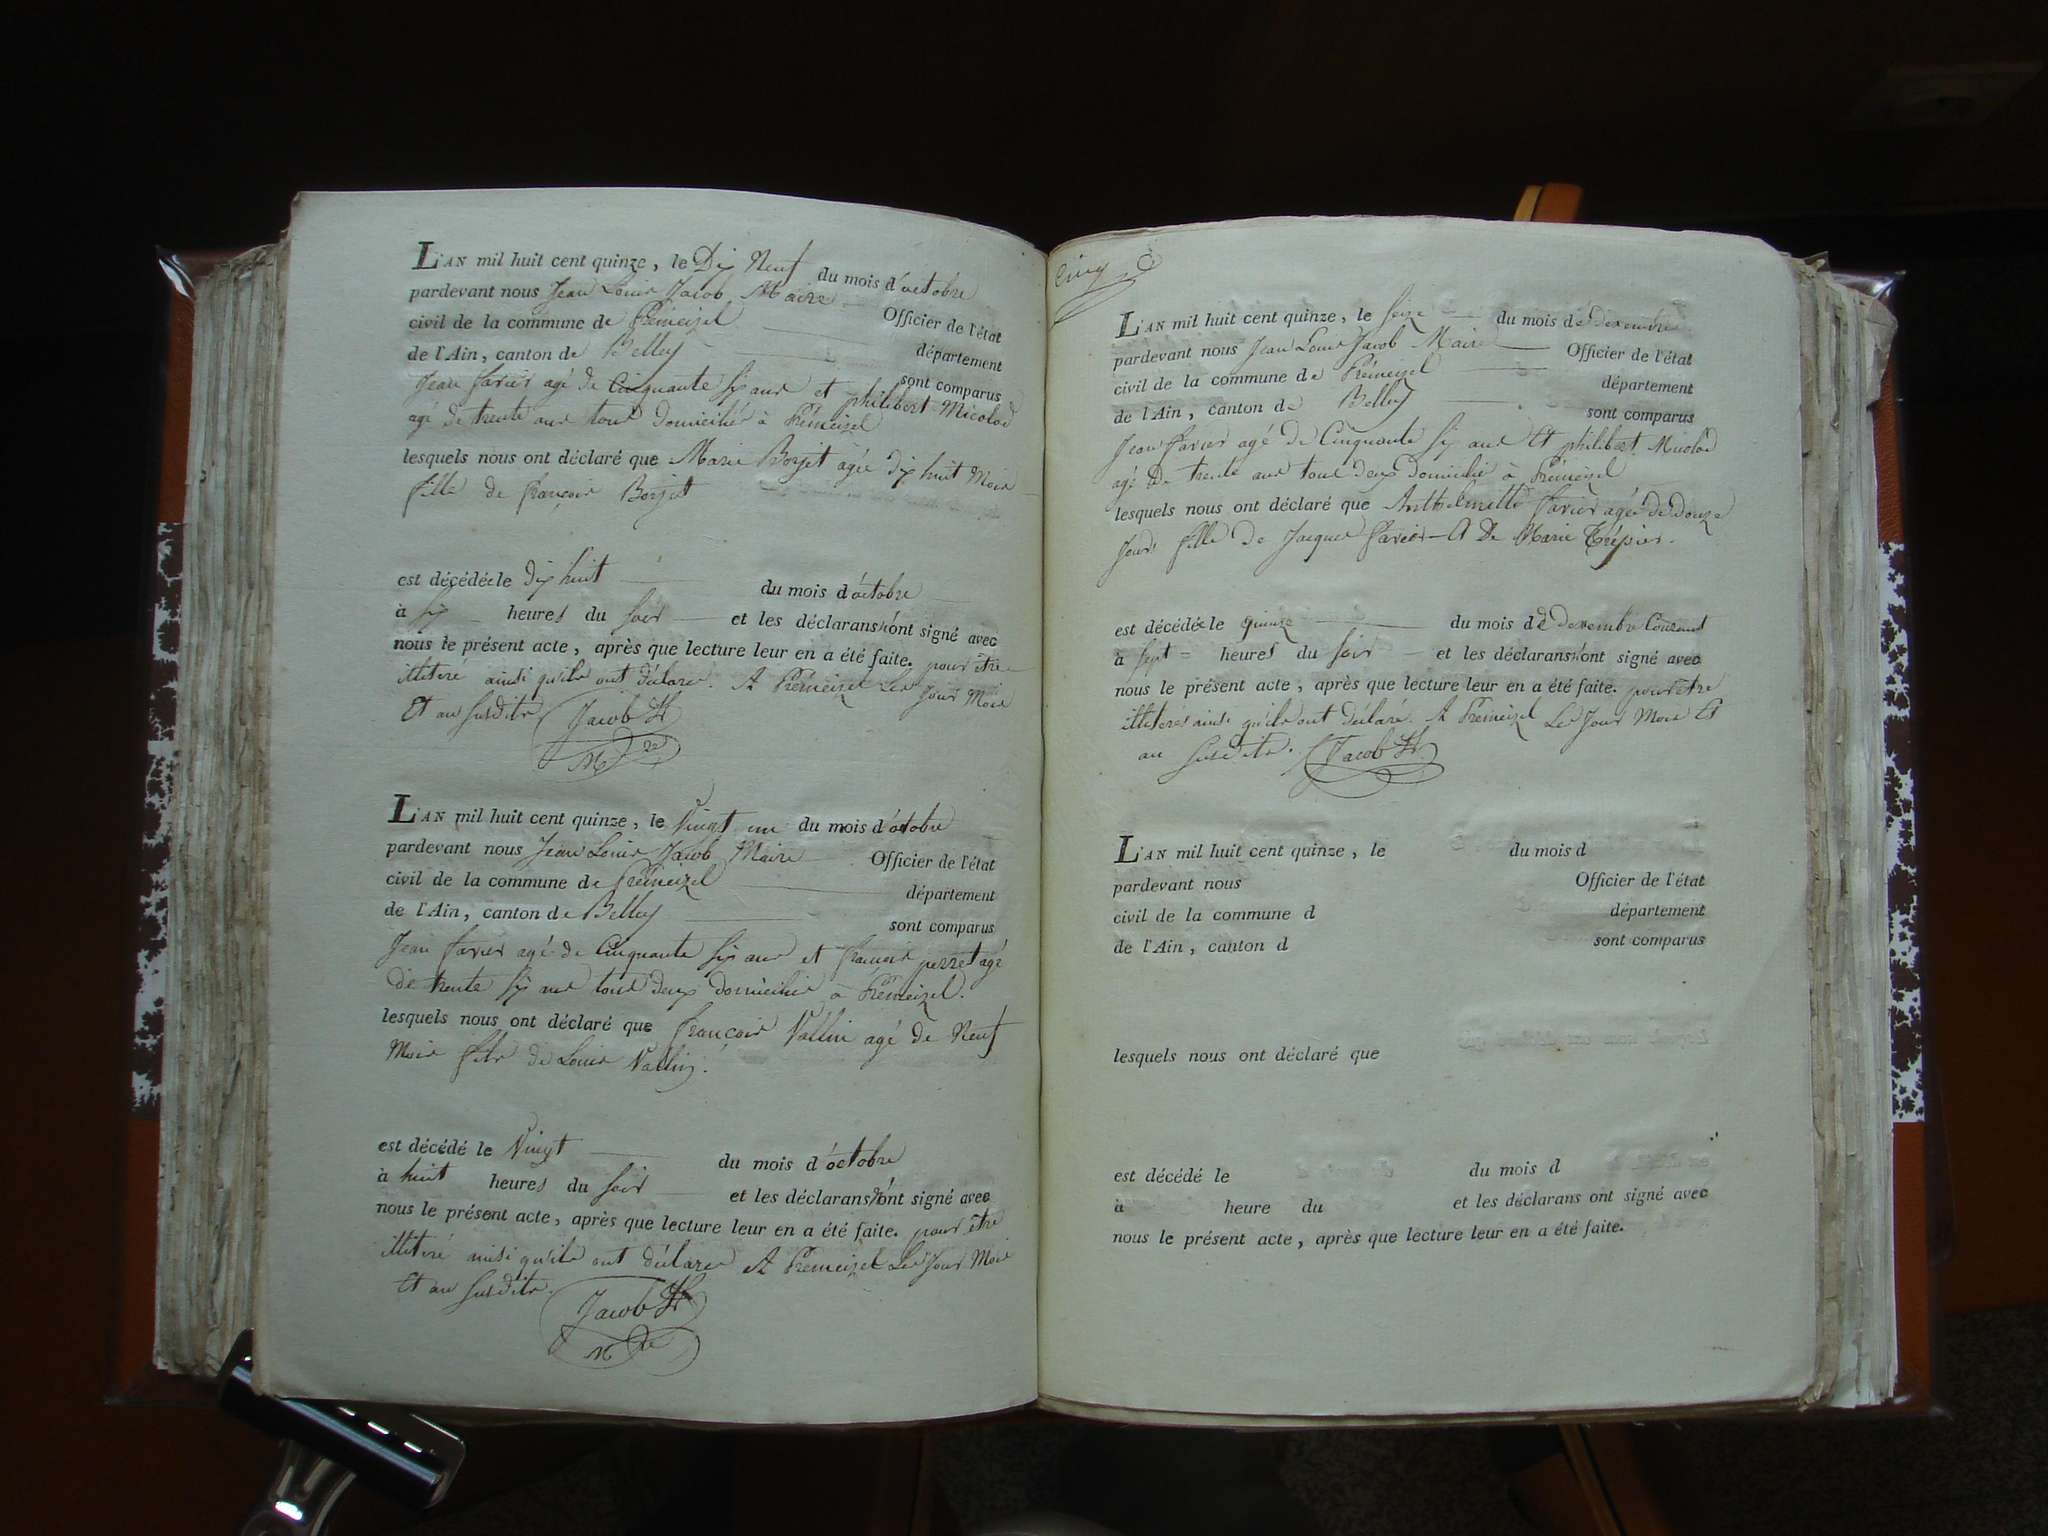 L'AN mil huit cent quinze, le Dix Neuf du mois d'octobre
pardevant nous Jean Louis Jacob Maire Officier de l'état
civil de la commune de Prémeizel département
de l'Ain, canton de Belley sont comparus
Jean favier agé de Cinquante six ans et philibert Micolod
agé de trente ans tous domiciliés à Prémeizel
lesquels nous ont déclaré que Marie Borjet agée dix huit Mois
fille de françois Borjet
est décédée le dix huit du mois d'octobre
à six heures du soir et les déclarans n'ont signé avec
nous le présent acte, après que lecture leur en a été faite. pour être
illiteré ainsi qu'ils ont déclaré. A Prémeizel Les Jour Mois
Et an susdits Jacob
M re
L'AN mil huit cent quinze, le Vingt un du mois d'octobre
pardevant nous Jean Louis Jacob Maire Officier de l'état
civil de la commune de Prémeizel département
de l'Ain, canton de Belley sont comparus
Jean favier agé de Cinquante six ans et françois perret agé
de trente six ans tous deux domicilies à Prémeizel.
lesquels nous ont déclaré que françois Vallin agé de Neuf
Mois fils de Louis Vallin.
est décédé le Vingt du mois d'octobre
à huit heures du soir et les déclarans n'ont signé avec
nous le présent acte, après que lecture leur en a été faite. pour être
illiteré ainsi qu'ils ont déclaré A Prémeizel Les Jour Mois
Et an susdits. Jacob
M re
Cinq
L'AN mil huit cent quinze, le seize du mois de décembre
pardevant nous Jean Louis Jacob Maire Officier de l'état
civil de la commune de Prémeizel département
de l'Ain, canton de Belley sont comparus
Jean favier agé de Cinquante six ans Et philibert Micolod
agé de trente ans tous deux domiciliés à Prémeizel
lesquels nous ont déclaré que Anthelmette favier agée de douze
Jours fille de Jacques favier et De Marie Trépier.
est décédée le quinze du mois de decembre Courant
à sept heures du soir et les déclarans n'ont signé avec
nous le présent acte, après que lecture leur en a été faite. pour être
illiterés ainsi qu'ils ont déclaré. A Prémeizel Les Jour Mois Et
an susdits. Jacob
L'AN mil huit cent quinze, le du mois d
pardevant nous Officier de l'état
civil de la commune d département
de l'Ain, canton d sont comparus
lesquels nous ont déclaré que
est décédé le du mois d
à heure du et les déclarans ont signé avec
nous le présent acte, après que lecture leur en a été faite.